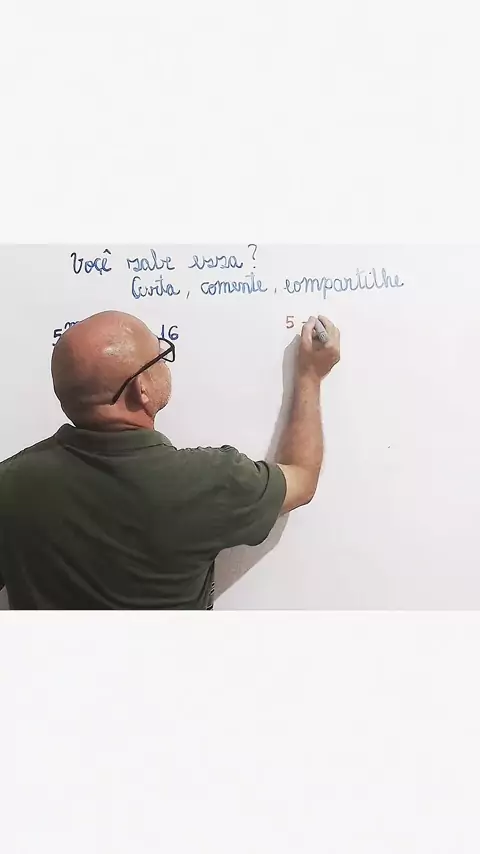 Voçê sabe essa?
Curta, comente, compartilhe
5 16
5 -